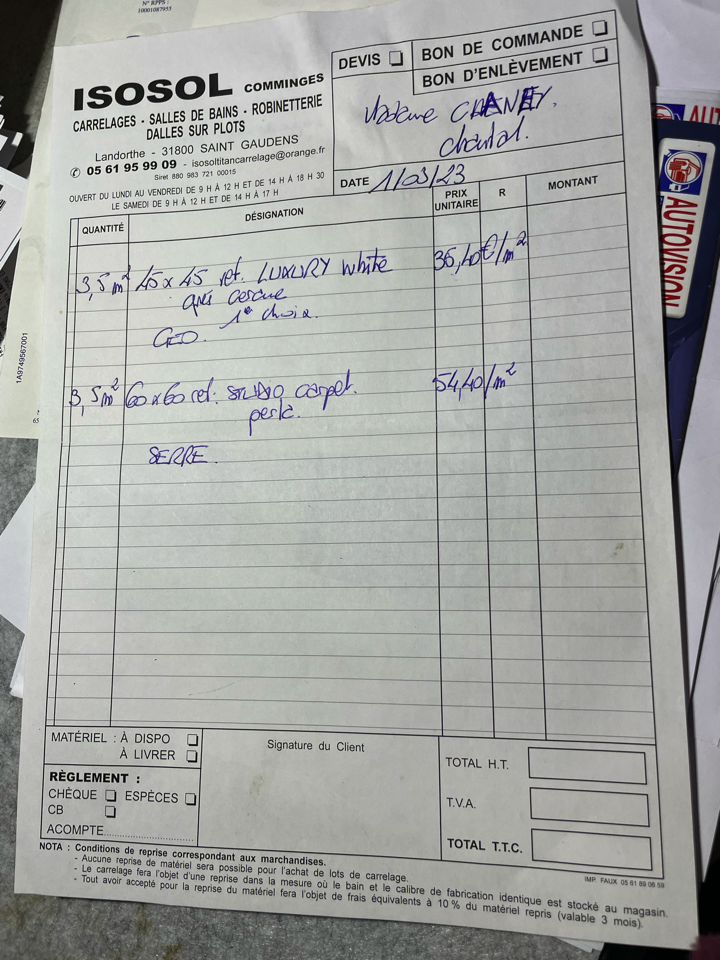 N° RPPS :
10001087953
ISOSOL COMMINGES
CARRELAGES - SALLES DE BAINS - ROBINETTERIE
DALLES SUR PLOTS
Landorthe - 31800 SAINT GAUDENS
✆ 05 61 95 99 09 - isosoltitancarrelage@orange.fr
Siret 880 983 721 00015
OUVERT DU LUNDI AU VENDREDI DE 9 H À 12 H ET DE 14 H À 18 H 30
LE SAMEDI DE 9 H À 12 H ET DE 14 H À 17 H
DEVIS
BON DE COMMANDE
BON D'ENLÈVEMENT
Madame
Chantal.
DATE 1/03/23
QUANTITÉ DÉSIGNATION PRIX UNITAIRE R MONTANT
3,5 m² 45 x 45 ret. LUXURY white 36,40€/m²
gris
1er choix.
GEO.
3,5 m² 60 x 60 ret. STUDIO carpet. 54,40/m²
perla.
SERRE.
MATÉRIEL : À DISPO
À LIVRER
RÈGLEMENT :
CHÈQUE ESPÈCES
CB
ACOMPTE
Signature du Client
TOTAL H.T.
T.V.A.
TOTAL T.T.C.
NOTA : Conditions de reprise correspondant aux marchandises.
- Aucune reprise de matériel sera possible pour l'achat de lots de carrelage.
- Le carrelage fera l'objet d'une reprise dans la mesure où le bain et le calibre de fabrication identique est stocké au magasin.
- Tout avoir accepté pour la reprise du matériel fera l'objet de frais équivalents à 10 % du matériel repris (valable 3 mois).
IMP. FAUX 05 61 89 06 59
1A9749567001
AUTOVISION